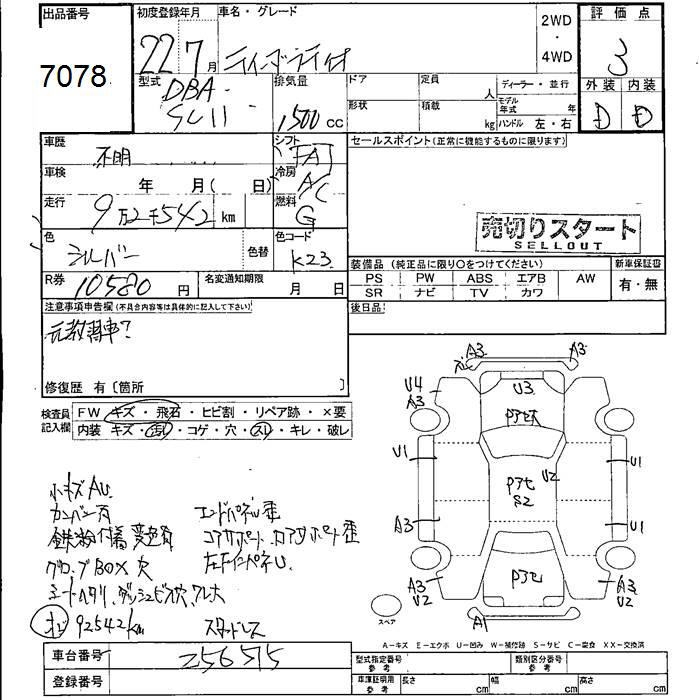 出品番号
7078
初度登録年月
22 7月
車名・グレード
ティーダラティオ
2WD
・
4WD
評価点
3
外装 内装
D D
型式
DBA-
SC11
排気量
1500 cc
ドア
定員
人
形状
積載
kg
ディーラー・並行
モデル年式 年
ハンドル 左・右
車歴
不明
シフト
FAT
車検
年 月( 日)
冷房
A/C
走行
9万2千542 km
燃料
G
色
シルバー
色替
色コード
K23
R券
10580 円
名変通知期限
月 日
注意事項申告欄(不具合内容等は具体的に記入して下さい)
元教習車?
修復歴 有〔箇所 〕
セールスポイント(正常に機能するものに限ります)
売切りスタート
SELLOUT
装備品(純正品に限り○をつけてください)
新車保証書
PS PW ABS エアB AW
SR ナビ TV カワ
有・無
後日品
検査員
記入欄
FW キズ・飛石・ヒビ割・リペア跡・×要
内装 キズ・汚れ・コゲ・穴・スレ・キレ・破レ
小キズAU
カンバン有
鉄粉付着 変色有
グローブBOX欠
シートヘタリ、ダッシュビス穴、ワレ大
92542km
エンドパネル歪
コアサポート、ロアサポート歪
左FインパネU
スタッドレス
A3
A3
U4
A3
U3
U1
U2
S2
U1
A3
U1
A3
U2
A3
U2
A1
スペア
A−キズ E−エクボ U−凹み W−補修跡 S−サビ C−腐食 XX−交換済
車台番号
256515
登録番号
型式指定番号
参考
類別区分番号
参考
車庫証明用
参考
長さ cm
幅 cm
高さ cm